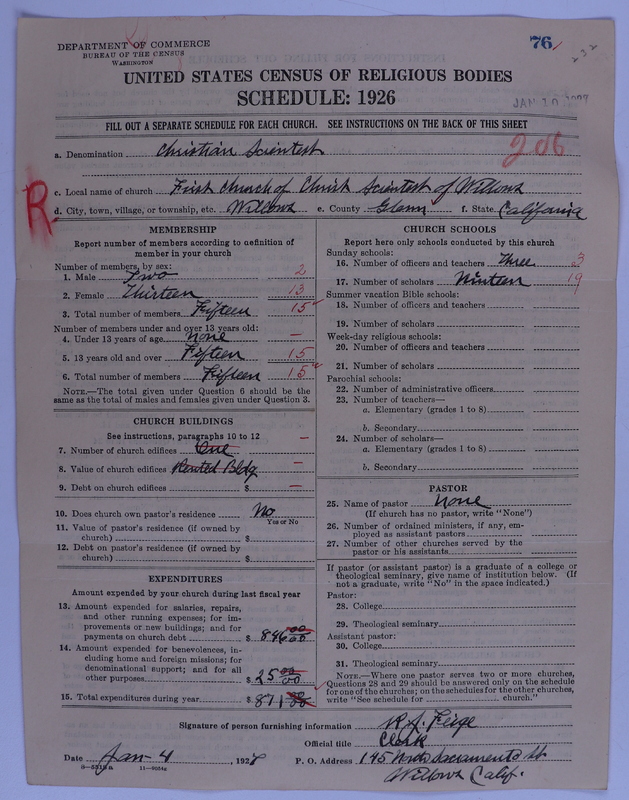 DEPARTMENT OF COMMERCE
BUREAU OF THE CENSUS
WASHINGTON
76
232
UNITED STATES CENSUS OF RELIGIOUS BODIES
SCHEDULE: 1926
FILL OUT A SEPARATE SCHEDULE FOR EACH CHURCH. SEE INSTRUCTIONS ON THE BACK OF THIS SHEET
a. Denomination Christian Scientest
206
c. Local name of church First Church of Christ Scientest of Willows
R
d. City, town, village, or township, etc. Willows e. County Glenn f. State California
MEMBERSHIP
Report number of members according to definition of
member in your church
Number of members, by sex:
1. Male Two 2
2. Female Thirteen 13
3. Total number of members Fifteen 15
Number of members under and over 13 years old:
4. Under 13 years of age none —
5. 13 years old and over Fifteen 15
6. Total number of members Fifteen 15
NOTE.—The total given under Question 6 should be the
same as the total of males and females given under Question 3.
CHURCH BUILDINGS
See instructions, paragraphs 10 to 12
7. Number of church edifices One —
8. Value of church edifices Rented Bldg —
9. Debt on church edifices $ —
10. Does church own pastor's residence No
Yes or No
11. Value of pastor's residence (if owned by
church) $
12. Debt on pastor's residence (if owned by
church) $
EXPENDITURES
Amount expended by your church during last fiscal year
13. Amount expended for salaries, repairs,
and other running expenses; for im-
provements or new buildings; and for
payments on church debt $ 846 00/00
14. Amount expended for benevolences, in-
cluding home and foreign missions; for
denominational support; and for all
other purposes $ 25 00/00
15. Total expenditures during year $ 871 00
CHURCH SCHOOLS
Report here only schools conducted by this church
Sunday schools:
16. Number of officers and teachers Three 3
17. Number of scholars Nineteen 19
Summer vacation Bible schools:
18. Number of officers and teachers
19. Number of scholars
Week-day religious schools:
20. Number of officers and teachers
21. Number of scholars
Parochial schools:
22. Number of administrative officers
23. Number of teachers—
a. Elementary (grades 1 to 8)
b. Secondary
24. Number of scholars—
a. Elementary (grades 1 to 8)
b. Secondary
PASTOR
25. Name of pastor None
(If church has no pastor, write "None")
26. Number of ordained ministers, if any, em-
ployed as assistant pastors
27. Number of other churches served by the
pastor or his assistants
If pastor (or assistant pastor) is a graduate of a college or
theological seminary, give name of institution below. (If
not a graduate, write "No" in the space indicated.)
Pastor:
28. College
29. Theological seminary
Assistant pastor:
30. College
31. Theological seminary
NOTE.—Where one pastor serves two or more churches,
Questions 28 and 29 should be answered only on the schedule
for one of the churches; on the schedules for the other churches,
write "See schedule for church."
Signature of person furnishing information R. J. Feige
Official title Clerk
Date Jan-4 192 P. O. Address 145 Sacramento St
Willows Calif.
11—9054a